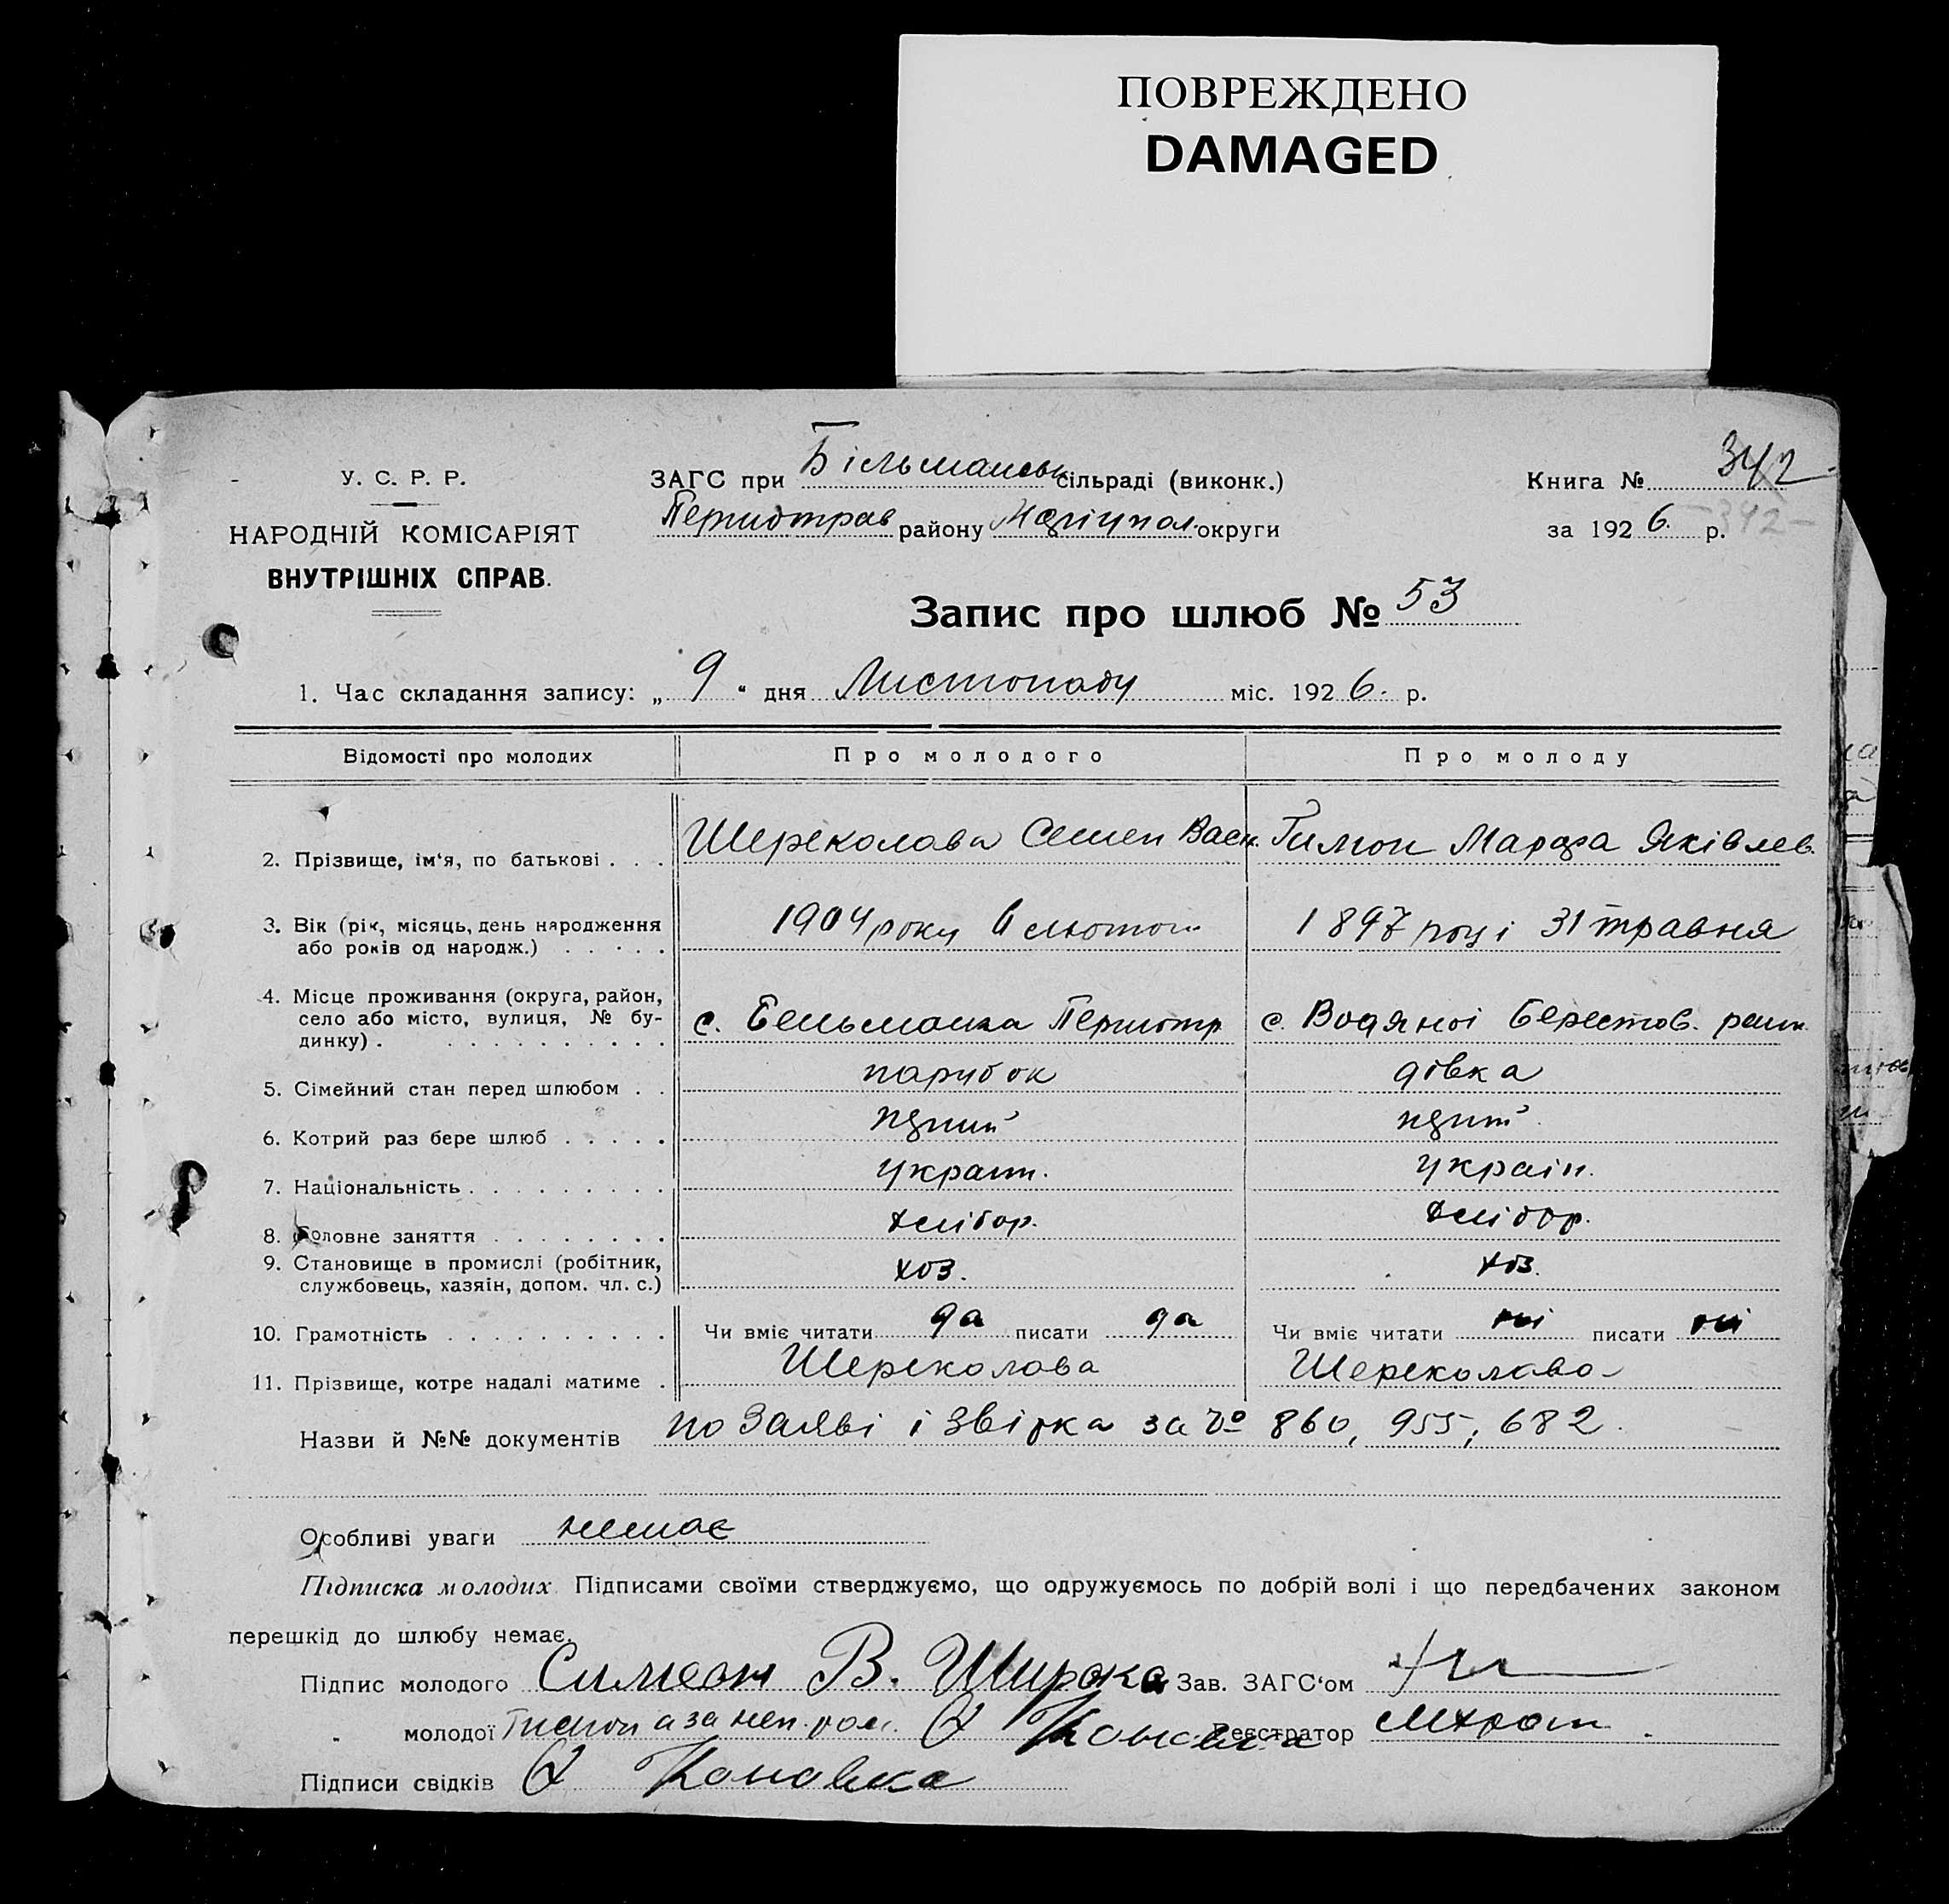 ПОВРЕЖДЕНО
DAMAGED
У. С. Р. Р.
НАРОДНІЙ КОМІСАРІЯТ
ВНУТРІШНІХ СПРАВ.
ЗАГС при Більманськ сільраді (виконк.)
Першотрав району Маріупол. округи
Книга № 342
за 1926 р.
342
Запис про шлюб № 53
1. Час складання запису: „ 9 “ дня Листопаду міс. 1926. р.
Відомості про молодих Про молодого Про молоду
2. Прізвище, ім‘я, по батькові . . . Шереколава Семен Васи. Гимон Марфа Яківлев.
3. Вік (рік, місяць, день народження
або років од народж.) . . . . . 1904 року лютого 1897 році 31 травня
4. Місце проживання (округа, район,
село або місто, вулиця, № бу-
динку) . . . . . . . . . . . с. Бельманка Першотр с. Водяної Берестов. раи
5. Сімейний стан перед шлюбом . . парубок дівка
6. Котрий раз бере шлюб . . . . .
7. Національність . . . . . . . . . україн. україн.
8. Головне заняття . . . . . . . . хлібор. хлібор.
9. Становище в промислі (робітник,
службовець, хазяін, допом. чл. с.) хоз. хоз.
10. Грамотність . . . . . . . . . . Чи вміє читати да писати да Чи вміє читати ні писати ні
11. Прізвище, котре надалі матиме . Шереколава Шереколава
Назви й №№ документів по Заяві і Звірка за № 860, 955, 682.
Особливі уваги немає
Підписка молодих Підписами своїми стверджуємо, що одружуємось по добрій волі і що передбачених законом
перешкід до шлюбу немає.
Підпис молодого Симеон В. Широка Зав. ЗАГС‘ом
молодої Гимон а за неп. Коновка Реєстратор
Підписи свідків Коновка